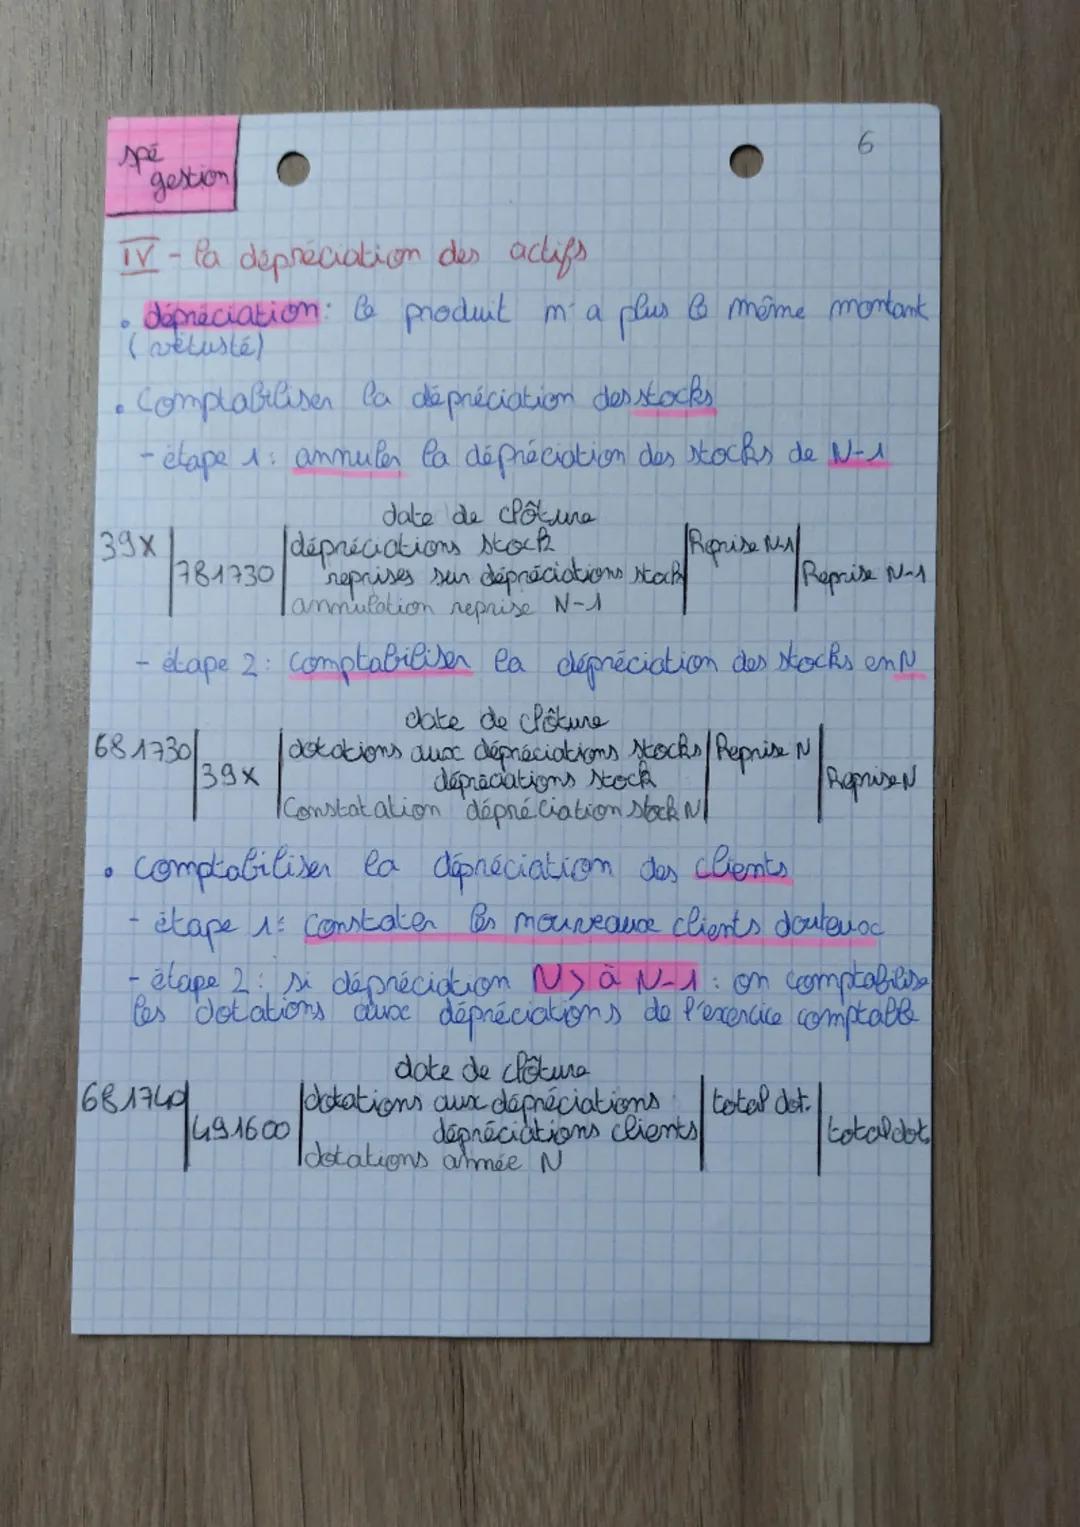 spé
gestion
6
IV - la dépréciation des actifs
• dépréciation : le produit n'a plus le même montant
(vétusté)
• Comptabiliser la dépréciation des stocks
- étape 1 : annuler la dépréciation des stocks de N-1
date de clôture
39X | dépréciations stock | Reprise N-1
781730 | reprises sur dépréciations stock | Reprise N-1
annulation reprise N-1
- étape 2 : comptabiliser la dépréciation des stocks en N
date de clôture
681730 | dotations aux dépréciations stocks | Reprise N
39x | dépréciations stock | Reprise N
Constatation dépréciation stock N
• comptabiliser la dépréciation des clients
- étape 1 : constater les nouveaux clients douteux
- étape 2 : si dépréciation N > à N-1 : on comptabilise
les dotations aux dépréciations de l'exercice comptable
date de clôture
681740 | dotations aux dépréciations | total dot.
491600 | dépréciations clients | total dot.
dotations année N